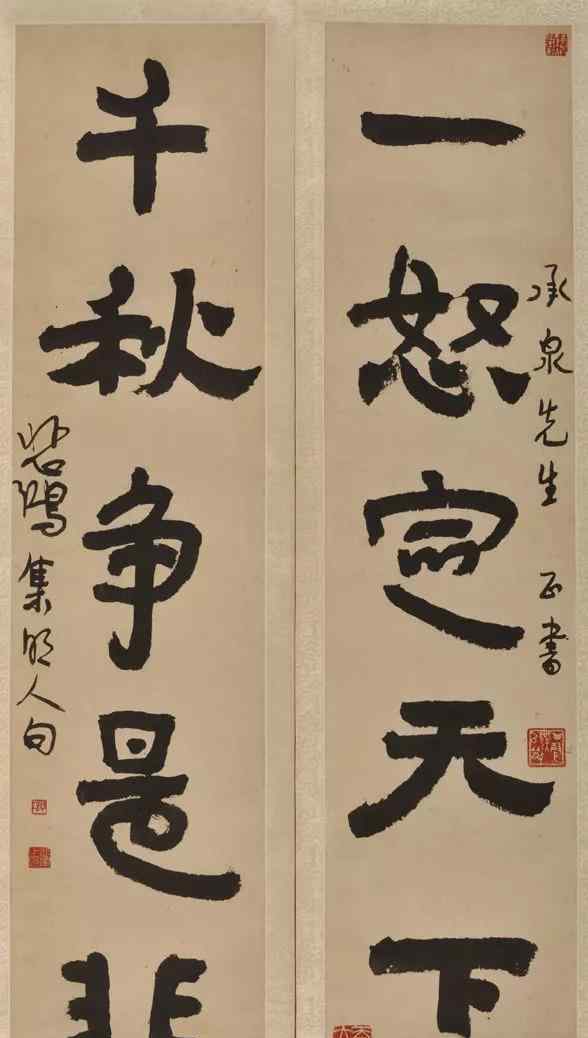 承泉先生 正書
一怒定天下
千秋争是非
悲鴻集明人句